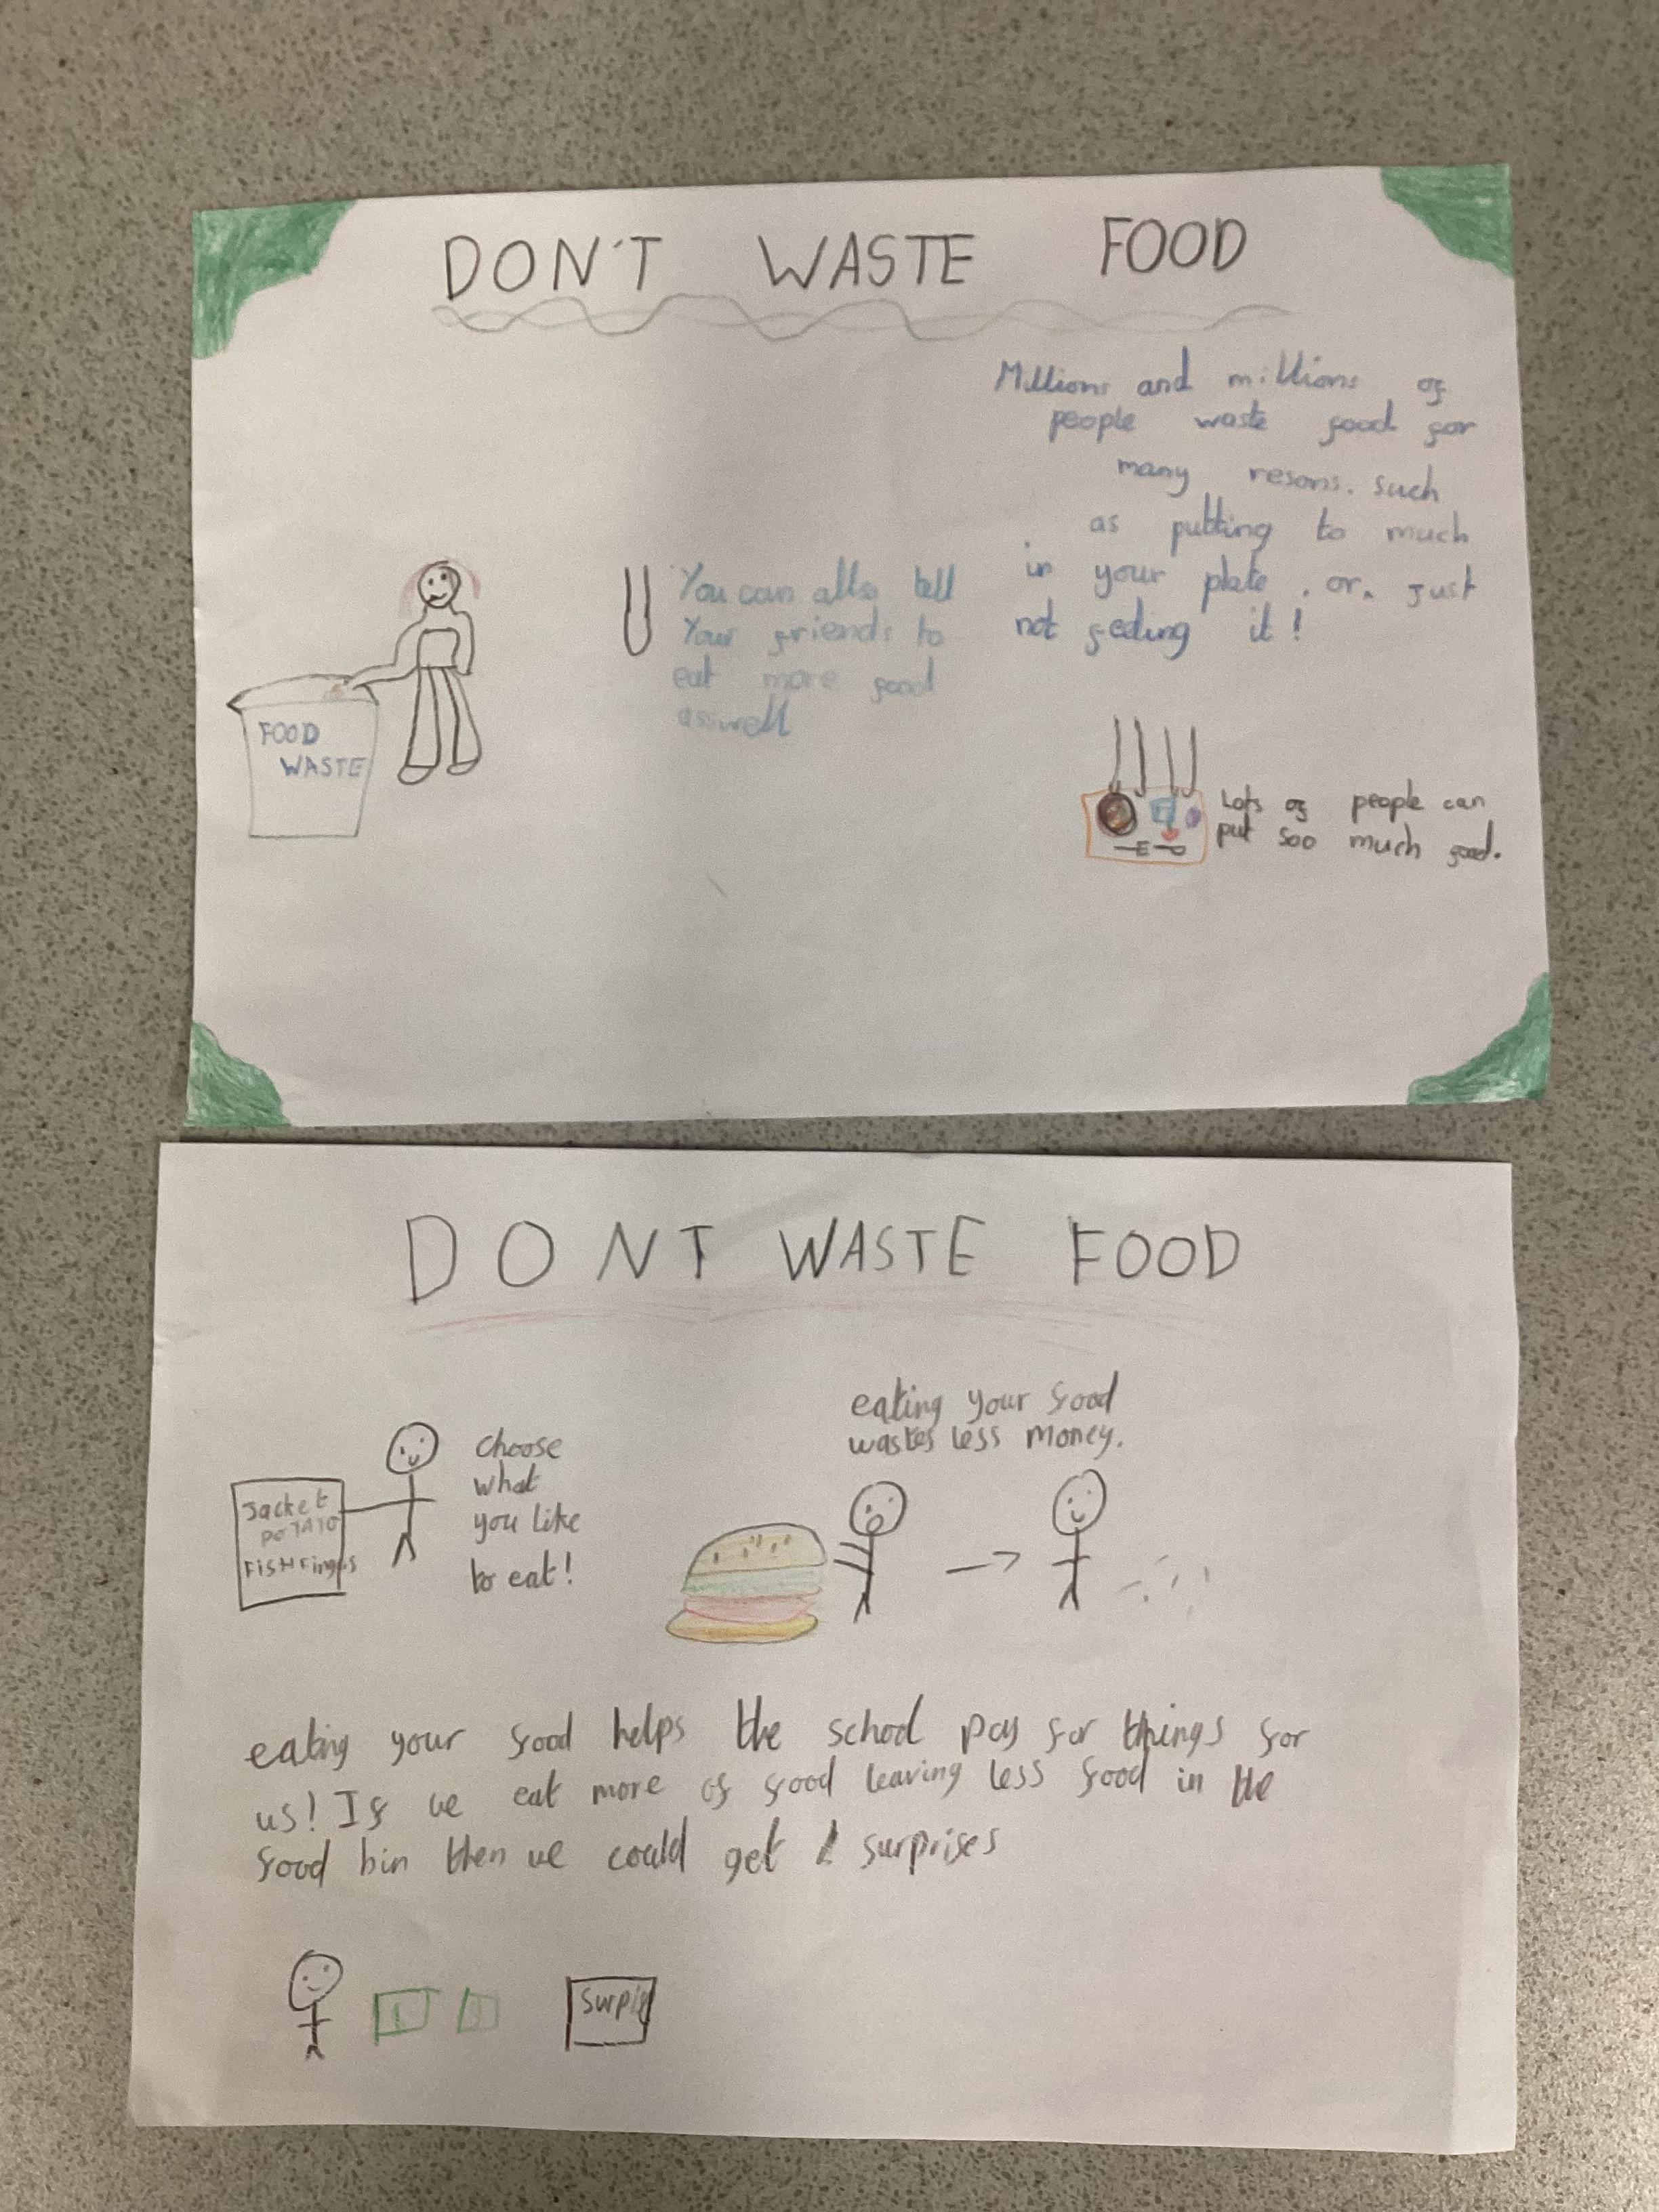 DON'T WASTE FOOD
Millions and millions of
people waste food for
many resons. such
as putting to much
in your plate, or, just
not feeling it!
You can allso tell
Your friends to
eat more food
asswell
FOOD
WASTE
Lots of people can
put soo much food.
DONT WASTE FOOD
choose
what
you like
to eat!
Jacket
POTATO
FisHFingus
eating your food
wastes less money.
eating your food helps the school pay for things for
us! If we eat more of food leaving less food in the
food bin then we could get surprises